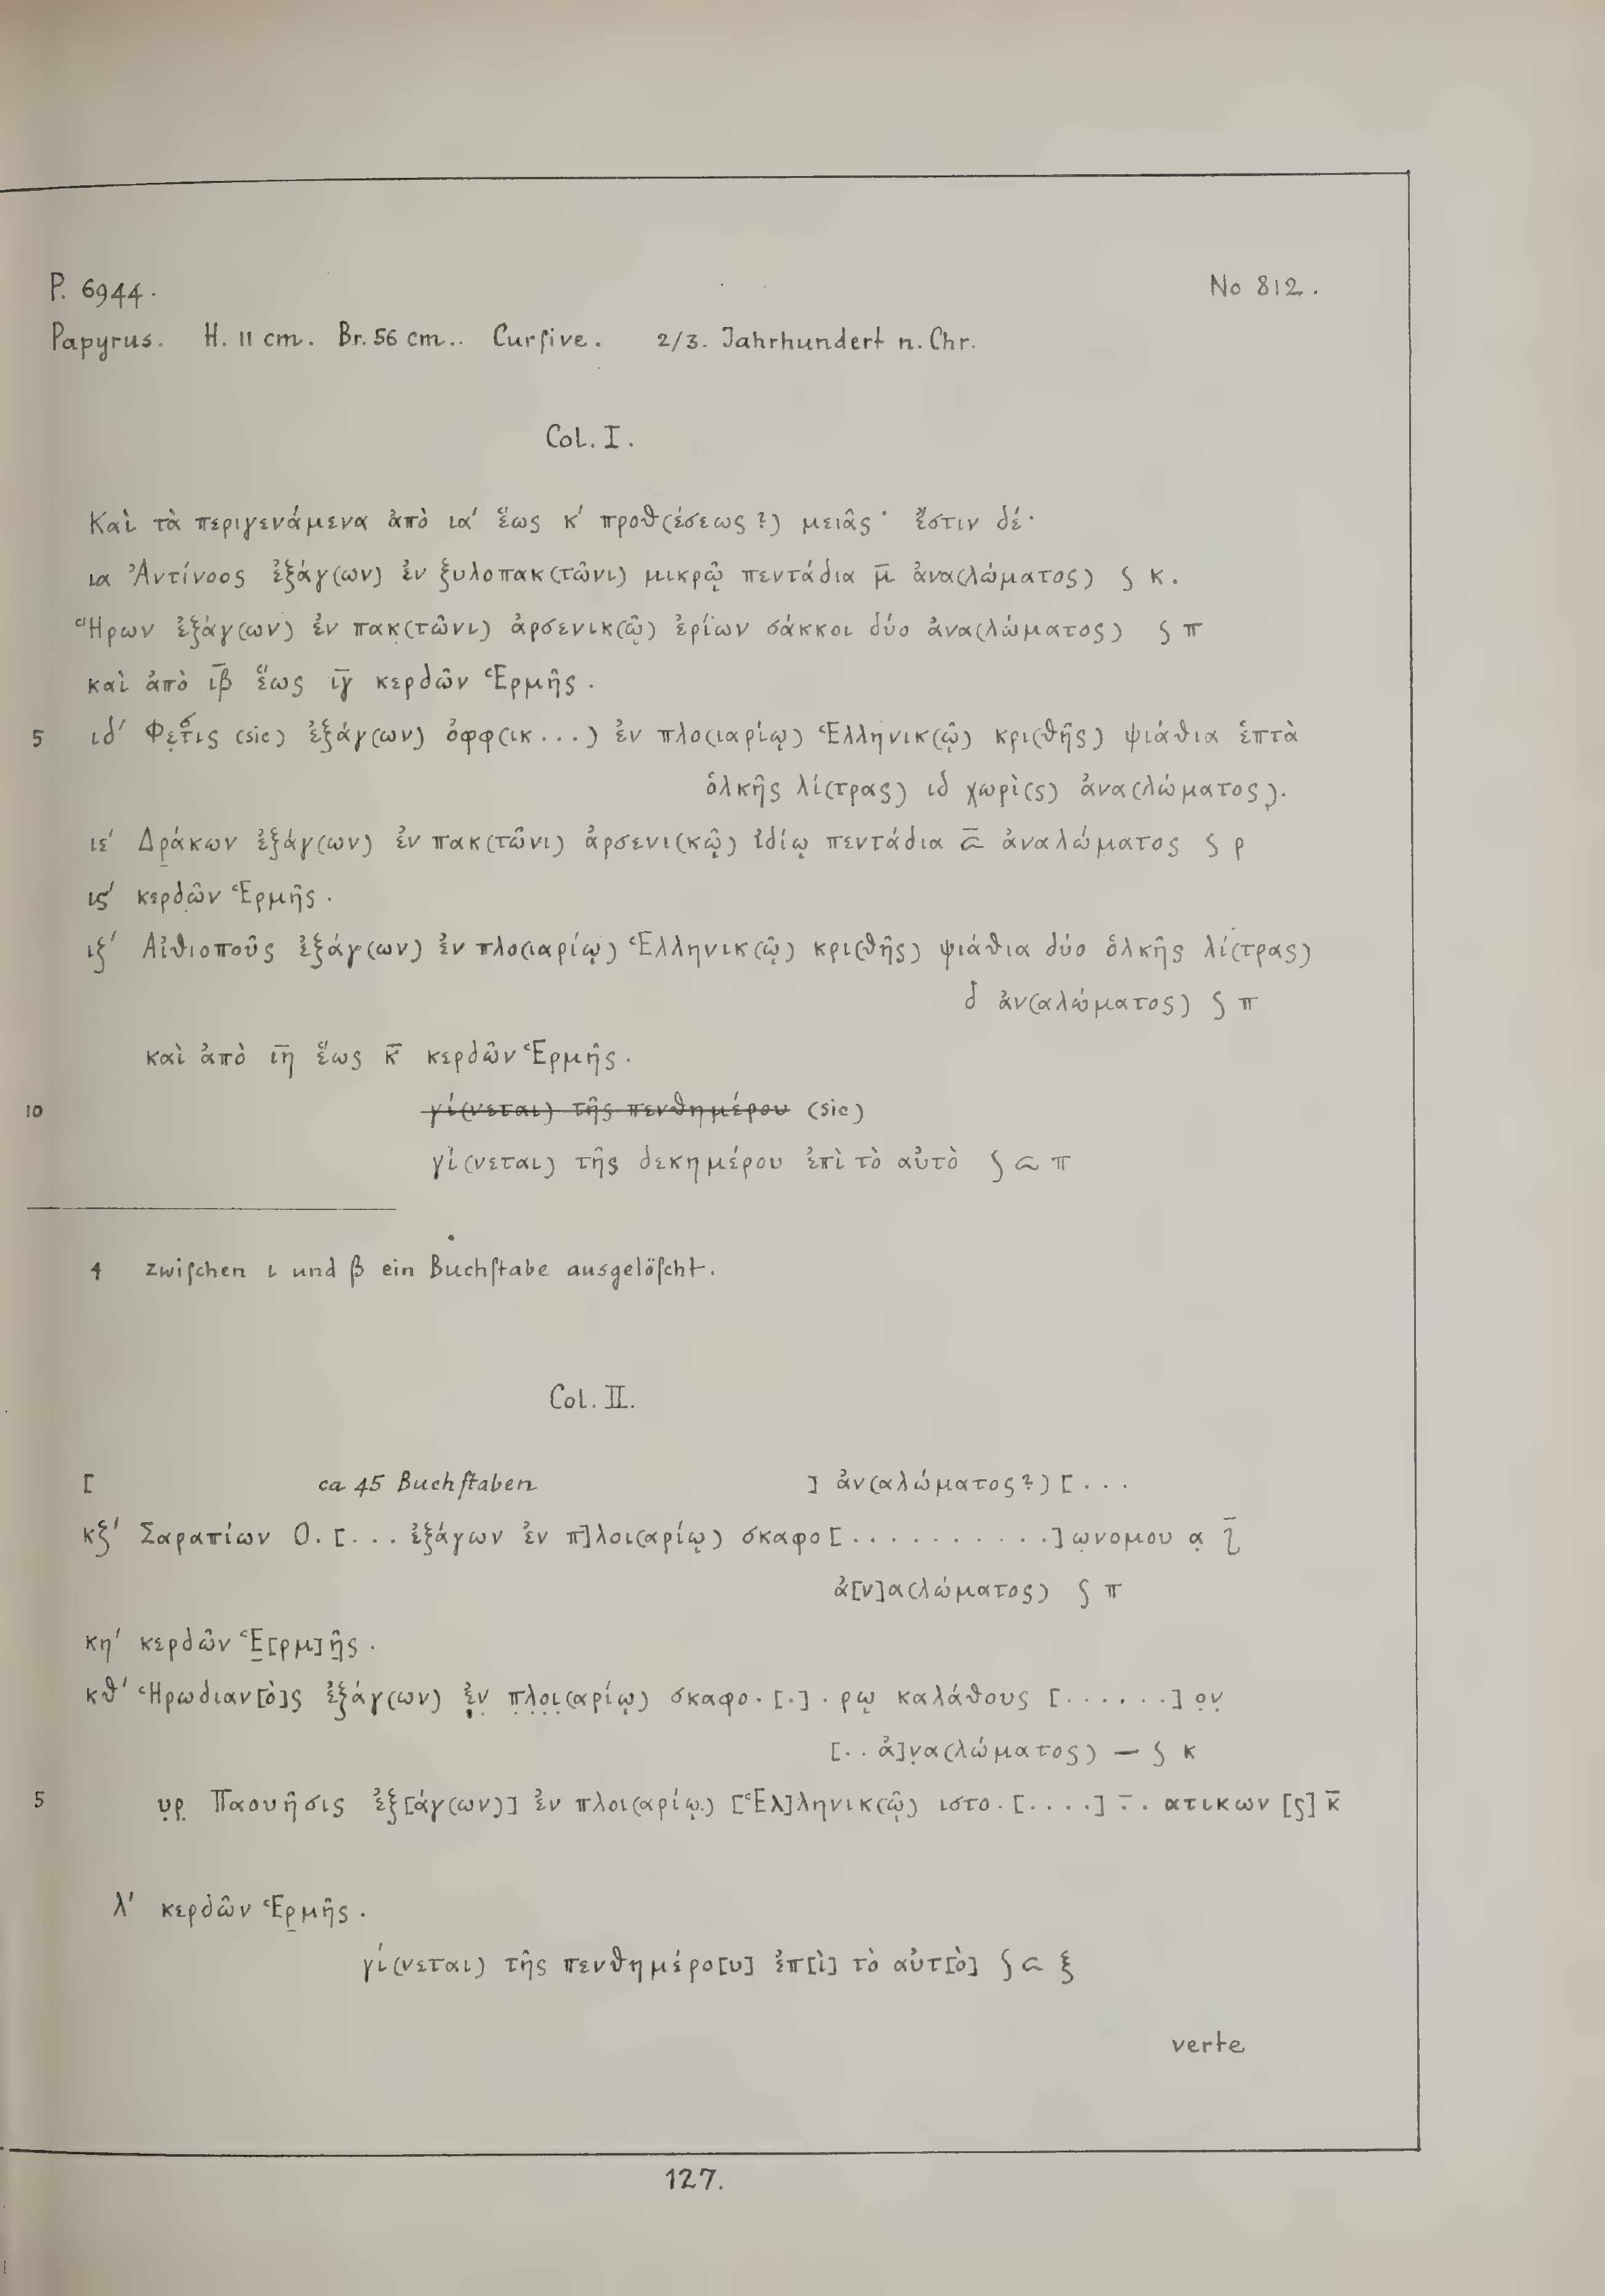 P. 6944. No 812.
Papyrus. H. 11 cm. Br. 56 cm.. Curſive. 2/3. Jahrhundert n. Chr.
Col. I.
Καὶ τὰ περιγενάμενα ἀπὸ ια' ἕως κ' προθ(έσεως?) μειᾶς· ἔστιν δέ·
ια Ἀντίνοος ἐξάγ(ων) ἐν ξυλοπακ(τῶνι) μικρῷ πεντάδια μ̅ ἀνα(λώματος) ϛ κ.
Ἥρων ἐξάγ(ων) ἐν πακ(τῶνι) ἀρσενικ(ῷ) ἐρίων σάκκοι δύο ἀνα(λώματος) ϛ π
καὶ ἀπὸ ι̅β ἕως ι̅γ κερδῶν Ἑρμῆς.
5 ιδ' Φε̣τις (sic) ἐξάγ(ων) ὀφφ(ικ...) ἐν πλο(ιαρίῳ) Ἑλληνικ(ῷ) κρι(θῆς) ψιάθια ἑπτὰ
ὁλκῆς λί(τρας) ιδ χωρὶ(ς) ἀνα(λώματος).
ιε' Δρ̣άκων ἐξάγ(ων) ἐν πακ(τῶνι) ἀρσενι(κῷ) ἰδίῳ πεντάδια σ̅ ἀναλώματος ϛ ρ
ιϛ' κερδῶν Ἑρμῆς.
ιξ' Αἰθιοποῦς ἐξάγ(ων) ἐν πλο(ιαρίῳ) Ἑλληνικ(ῷ) κρι(θῆς) ψιάθια δύο ὁλκῆς λί(τρας)
δ ἀν(αλώματος) ϛ π
καὶ ἀπὸ ι̅η̅ ἕως κ̅ κερδῶν Ἑρμῆς.
10 γί(νεται) τῆς πενθημέρου (sic)
γί(νεται) τῆς δεκημέρου ἐπὶ τὸ αὐτὸ ϛ σ π
4 zwiſchen ι und β ein Buchſtabe ausgelöſcht.
Col. II.
[ ca 45 Buchſtaben ] ἀν(αλώματος?) [...
κξ' Σαραπίων Ο.[... ἐξάγων ἐν π]λοι(αρίῳ) σκαφο[..........]ω̣νομου α̣
ἀ[ν]α(λώματος) ϛ π
κη' κερδῶν Ἑ̣[ρμ]ῆ̣ς.
κθ' Ἡρωδιαν[ὸ]ς ἐξάγ(ων) ἐ̣ν̣ π̣λ̣ο̣ι̣(αρίῳ) σκαφο.[.].ρω̣ καλάθους [......]ο̣ν̣
[..ἀ]ν̣α(λώματος) — ϛ κ
5 υ̣ρ̣ Παουῆσις ἐξ[άγ(ων)] ἐν πλοι(αρίῳ) [Ἑλ]ληνικ(ῷ) ιστο.[....]..ατικων [ϛ] κ̅
λ' κερδῶν Ἑρ̣μῆς.
γί(νεται) τῆς πενθημέρο[υ] ἐπ[ὶ] τὸ αὐτ[ὸ] ϛ σ ξ
verte
127.